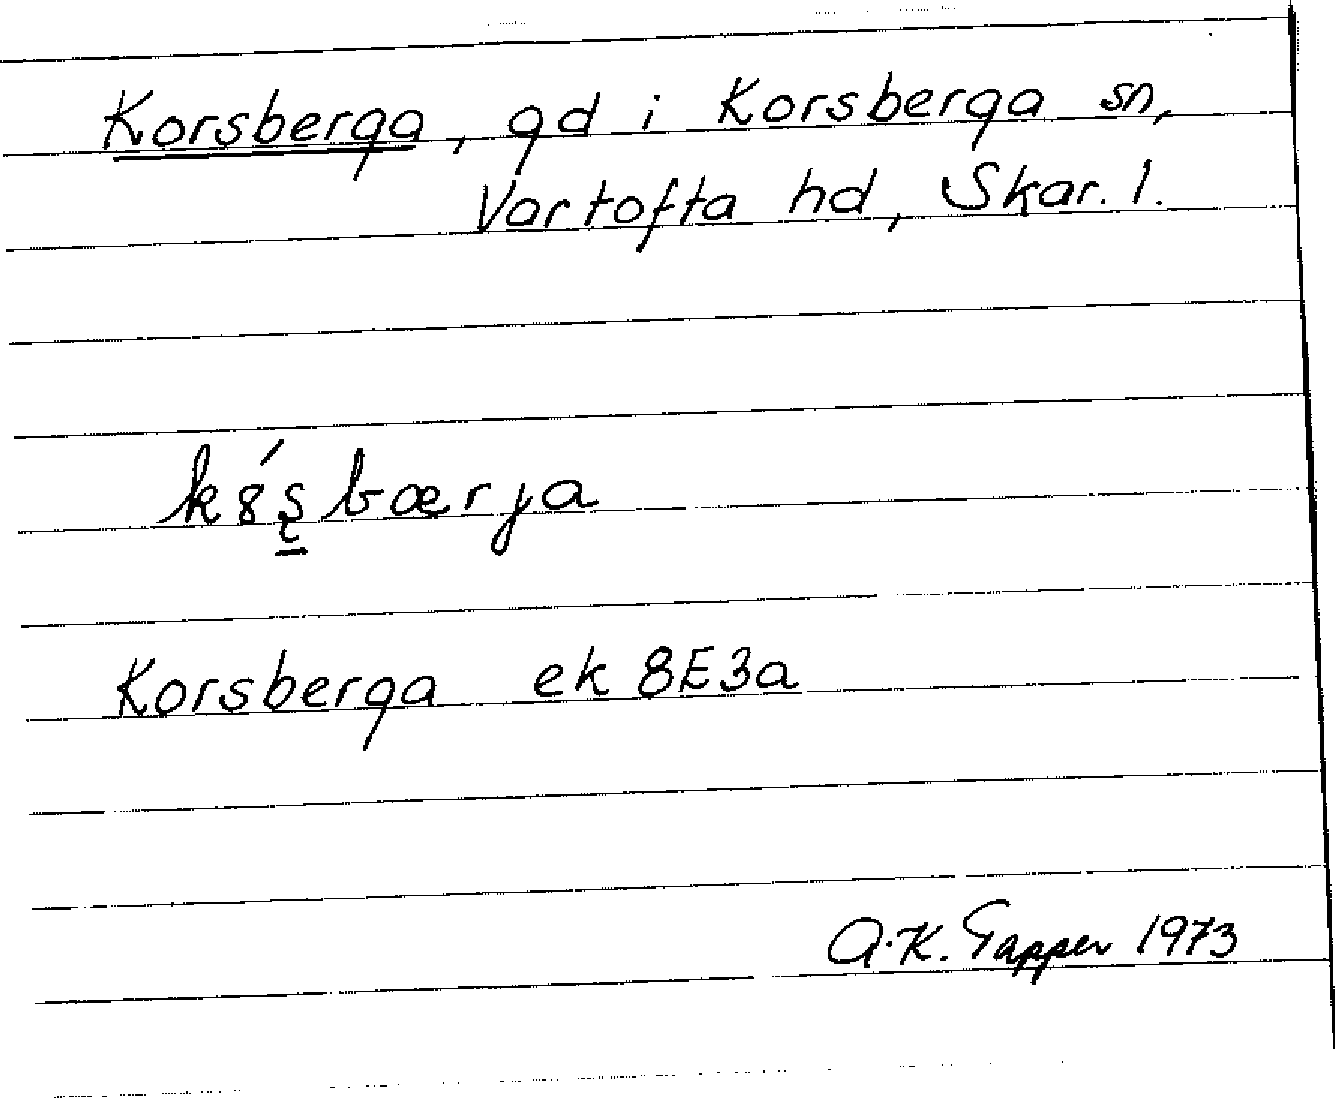 Korsberga, gd i Korsberga sn,
Vartofta hd, Skar. l.
k8́s̲bærja
Korsberga ek 8E3a
A.K. Tapper 1973